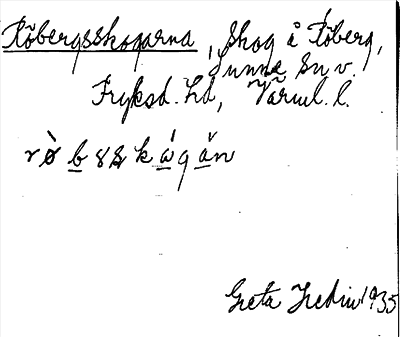 Röbergsskogarna, Skog å Röberg,
Sunne Sn v.
Fryksd. hd, Värml. l.
rò̀b̲ssk á̲gǎ̲n
Greta Hedin 1935